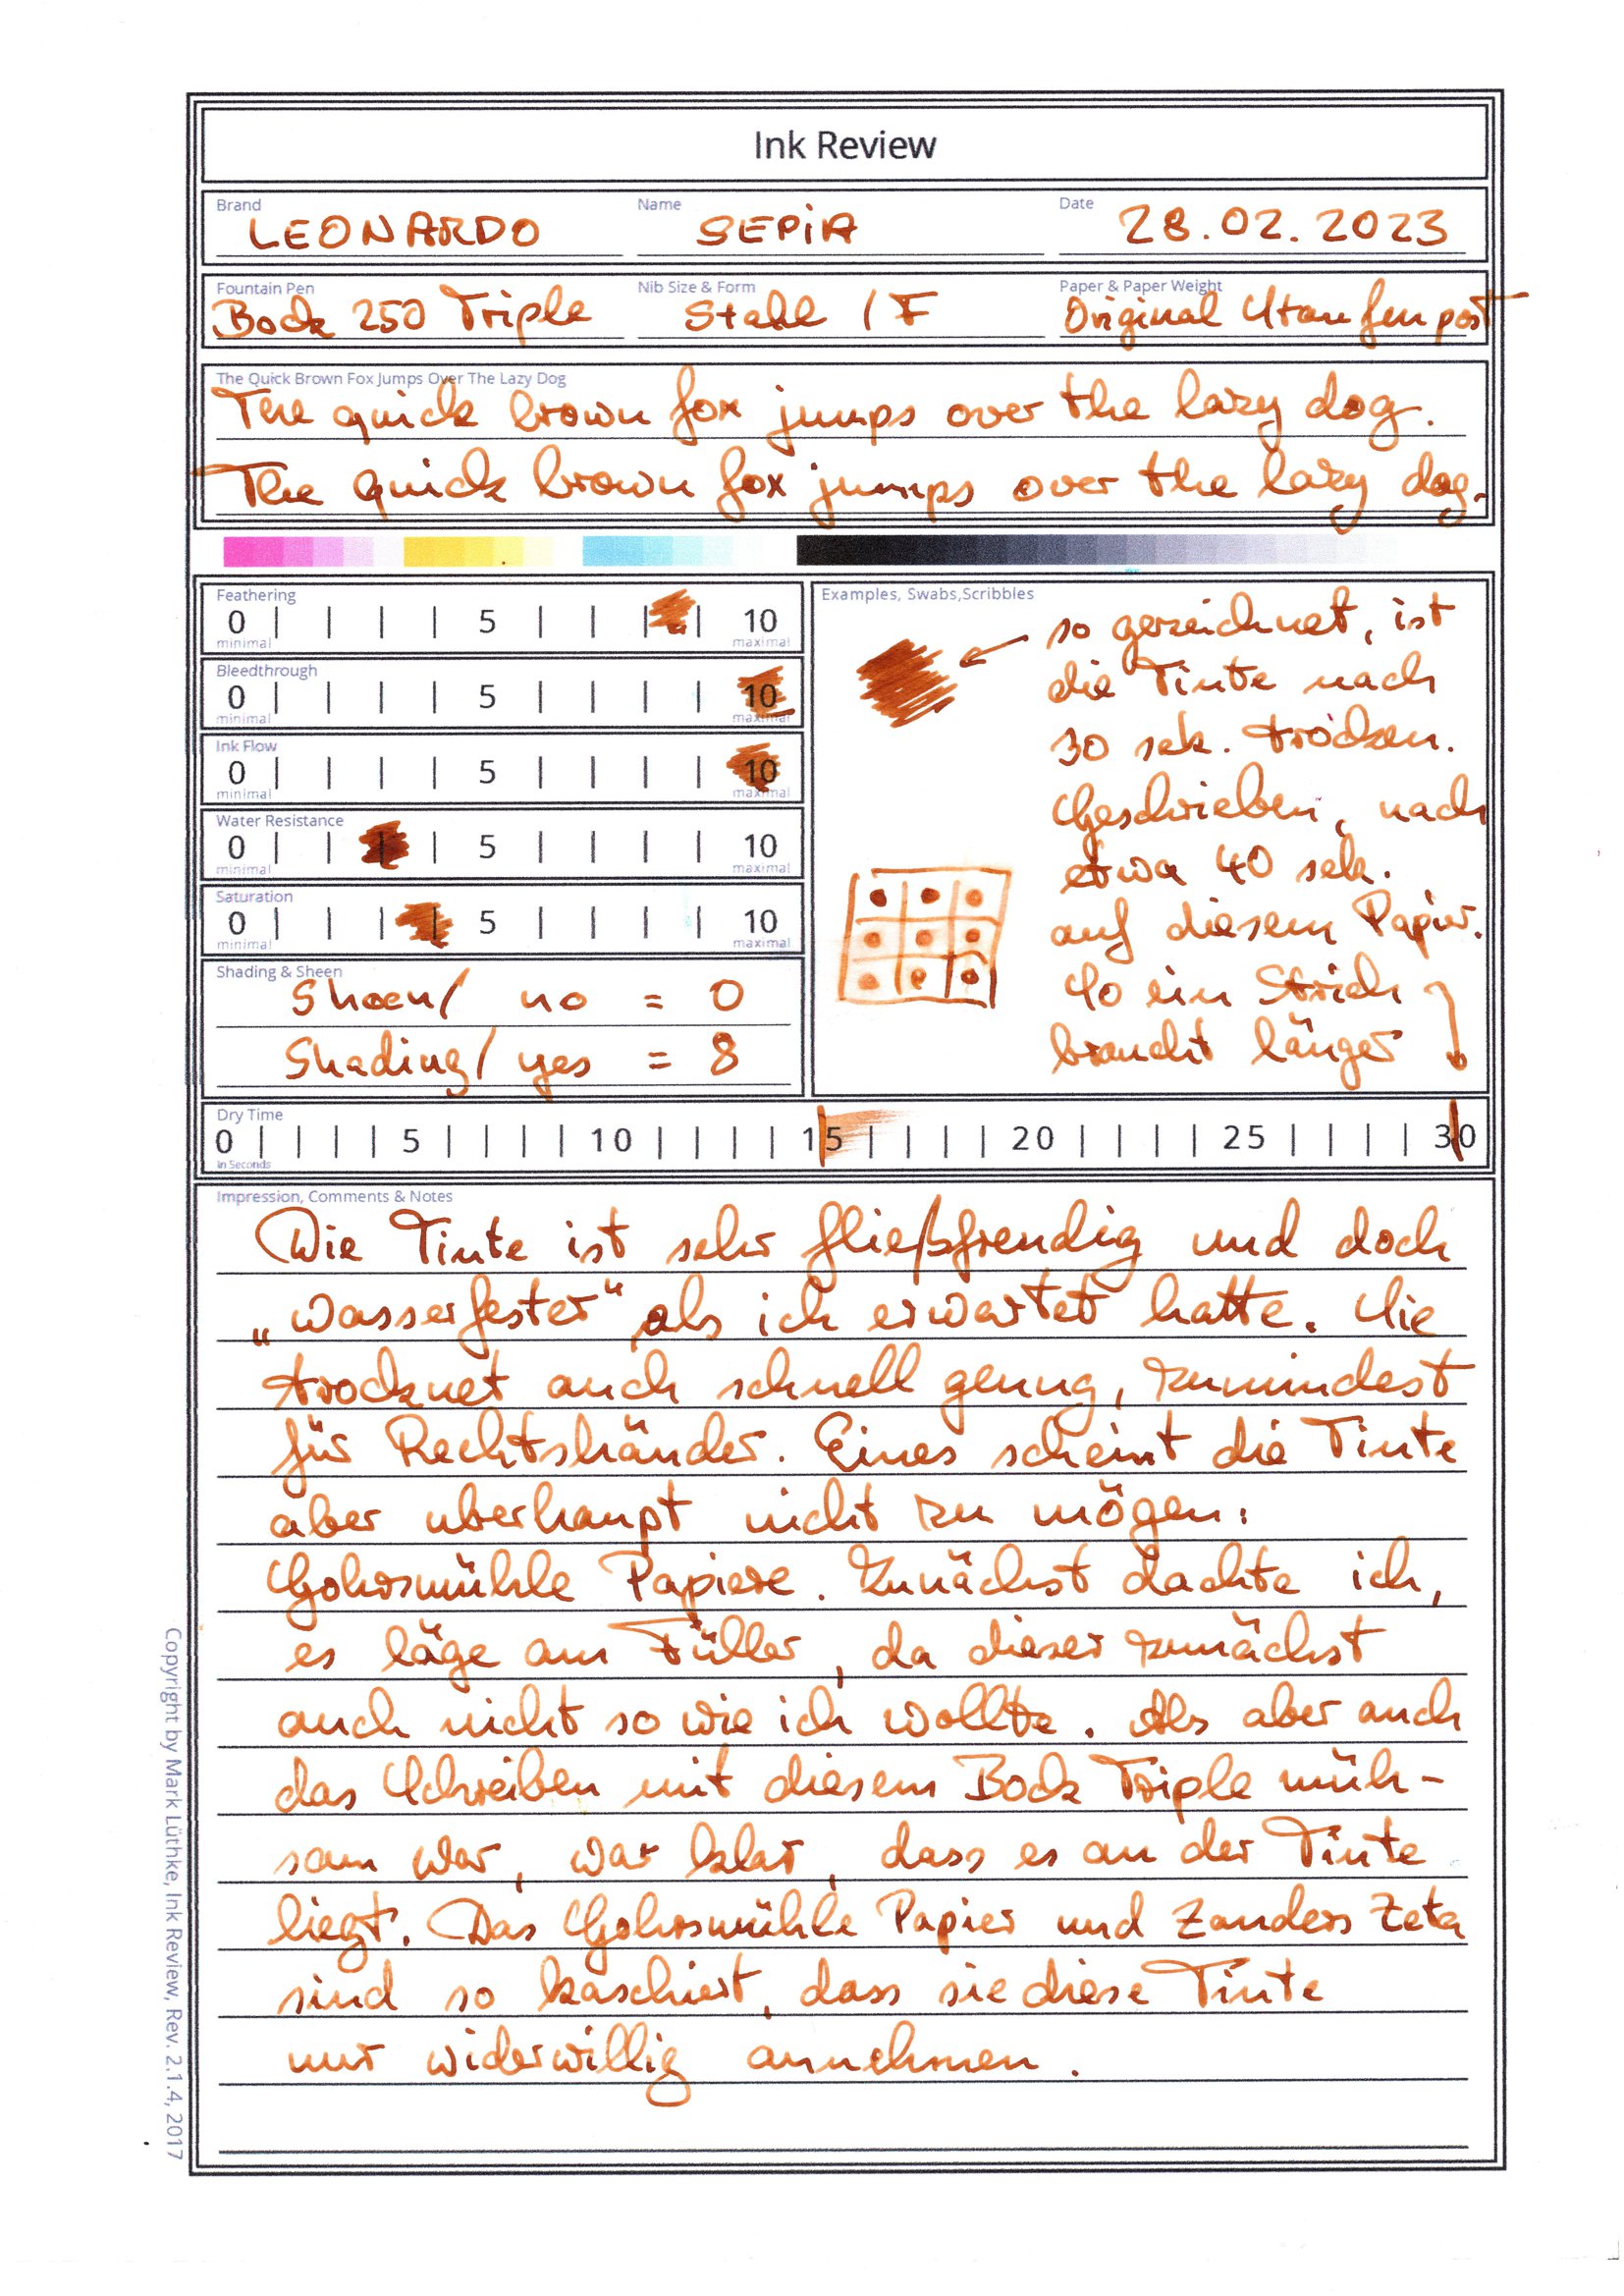 Ink Review
Brand Name Date
LEONARDO SEPiA 28.02.2023
Fountain Pen Nib Size & Form Paper & Paper Weight
Bock 250 Triple Stahl / F Original
The Quick Brown Fox Jumps Over The Lazy Dog
The quick brown fox jumps over the lazy dog.
The quick brown fox jumps over the lazy dog.
Feathering
0 5 10
minimal maximal
Bleedthrough
0 5 10
minimal maximal
Ink Flow
0 5 10
minimal maximal
Water Resistance
0 5 10
minimal maximal
Saturation
0 5 10
minimal maximal
Shading & Sheen
Sheen/ no = 0
Shading/ yes = 8
Examples, Swabs,Scribbles
so gezeichnet, ist
die Tinte nach
30 sek. trocken.
Geschrieben, nach
etwa 40 sek.
auf diesem Papier.
So ein Strich
braucht länger
Dry Time
0 5 10 15 20 25 30
In Seconds
Impression, Comments & Notes
Die Tinte ist sehr fließfreudig und doch
„wasserfester“ als ich erwartet hatte. Sie
trocknet auch schnell genug, zumindest
für Rechtshänder. Eines scheint die Tinte
aber uberhaupt nicht zu mögen:
Gohrsmühle Papiere. Zunächst dachte ich,
es läge am Füller, da dieser zunächst
auch nicht so wie ich wollte. Als aber auch
das Schreiben mit diesem Bock Triple müh-
sam war, war klar, dass es an der Tinte
liegt. Das Gohrsmühle Papier und Zanders Zeta
sind so kaschiert, dass sie diese Tinte
nur widerwillig annehmen.
Copyright by Mark Lüthke, Ink Review, Rev. 2.1.4, 2017